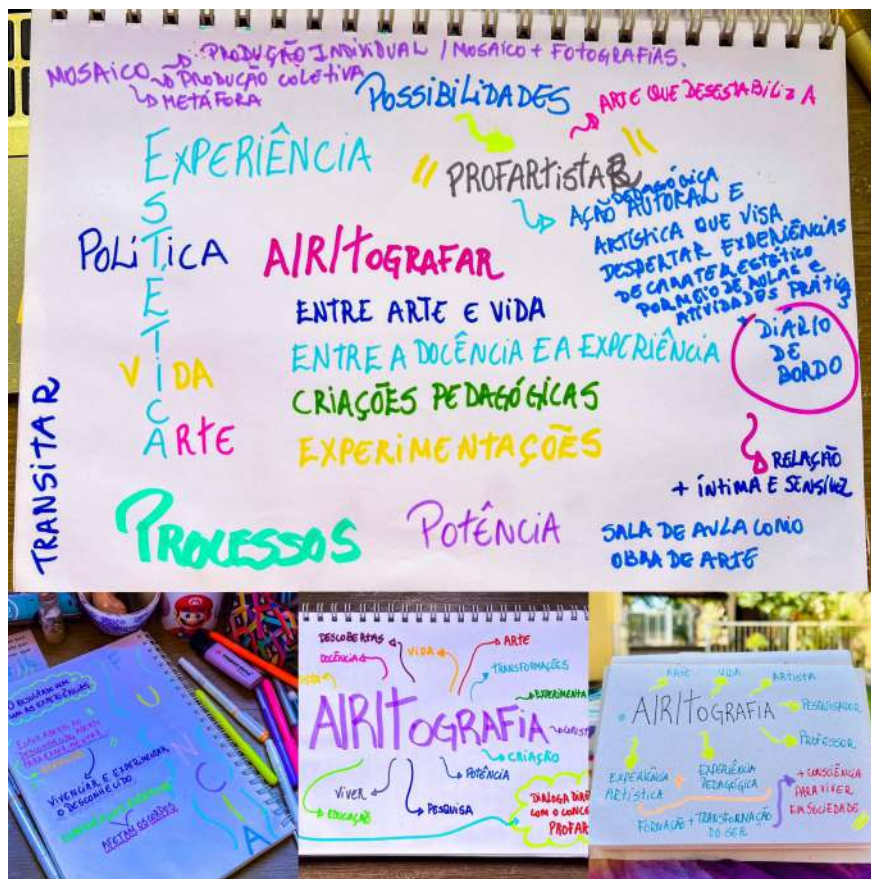 MOSAICO → PRODUÇÃO INDIVIDUAL / MOSAICO + FOTOGRAFIAS.
→ PRODUÇÃO COLETIVA
→ METÁFORA
POSSIBILIDADES
ARTE QUE DESESTABILIZA
EXPERIÊNCIA
ESTÉTICA
"PROFARTISTAR"
PEDAGÓGICA
AÇÃO AUTORAL E
ARTÍSTICA QUE VISA
DESPERTAR EXPERIÊNCIAS
DE CARATER ESTÉTICO
POR MEIO DE AULAS E
ATIVIDADES
POLÍTICA
A/R/TOGRAFAR
ENTRE ARTE E VIDA
ENTRE A DOCÊNCIA E A EXPERIÊNCIA
CRIAÇÕES PEDAGÓGICAS
EXPERIMENTAÇÕES
* DIÁRIO
DE
BORDO
VIDA
ARTE
TRANSITAR
RELAÇÃO
+ ÍNTIMA E SENSÍVEL
PROCESSOS
POTÊNCIA
SALA DE AULA COMO
OBRA DE ARTE
COM AS EXPERIÊNCIAS
VIVENCIAR E EXPERIMENTAR
O DESCONHECIDO
AFETAM OS CORPOS
DESCOBERTAS
VIDA
ARTE
DOCÊNCIA
TRANSFORMAÇÕES
EXPERIMENTA
A/R/TOGRAFIA
CRIAÇÃO
POTÊNCIA
VIVER
PESQUISA
EDUCAÇÃO
DIALOGA DIRE
COM O CONCE
PROFAR
ARTE
VIDA
ARTISTA
A/R/TOGRAFIA
PESQUISADOR
PROFESSOR
EXPERIÊNCIA
ARTÍSTICA
+
EXPERIÊNCIA
PEDAGÓGICA
+ CONSCIÊNCIA
PARA VIVER
EM SOCIEDADE
FORMAÇÃO + TRANSFORMAÇÃO
DO SER